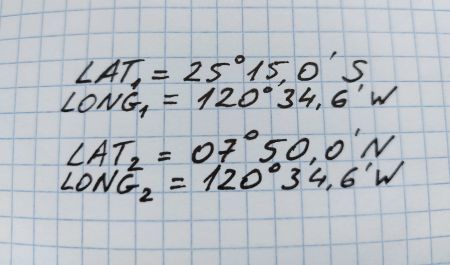 LAT₁ = 25°15,0' S
LONG₁ = 120°34,6' W
LAT₂ = 07°50,0' N
LONG₂ = 120°34,6' W